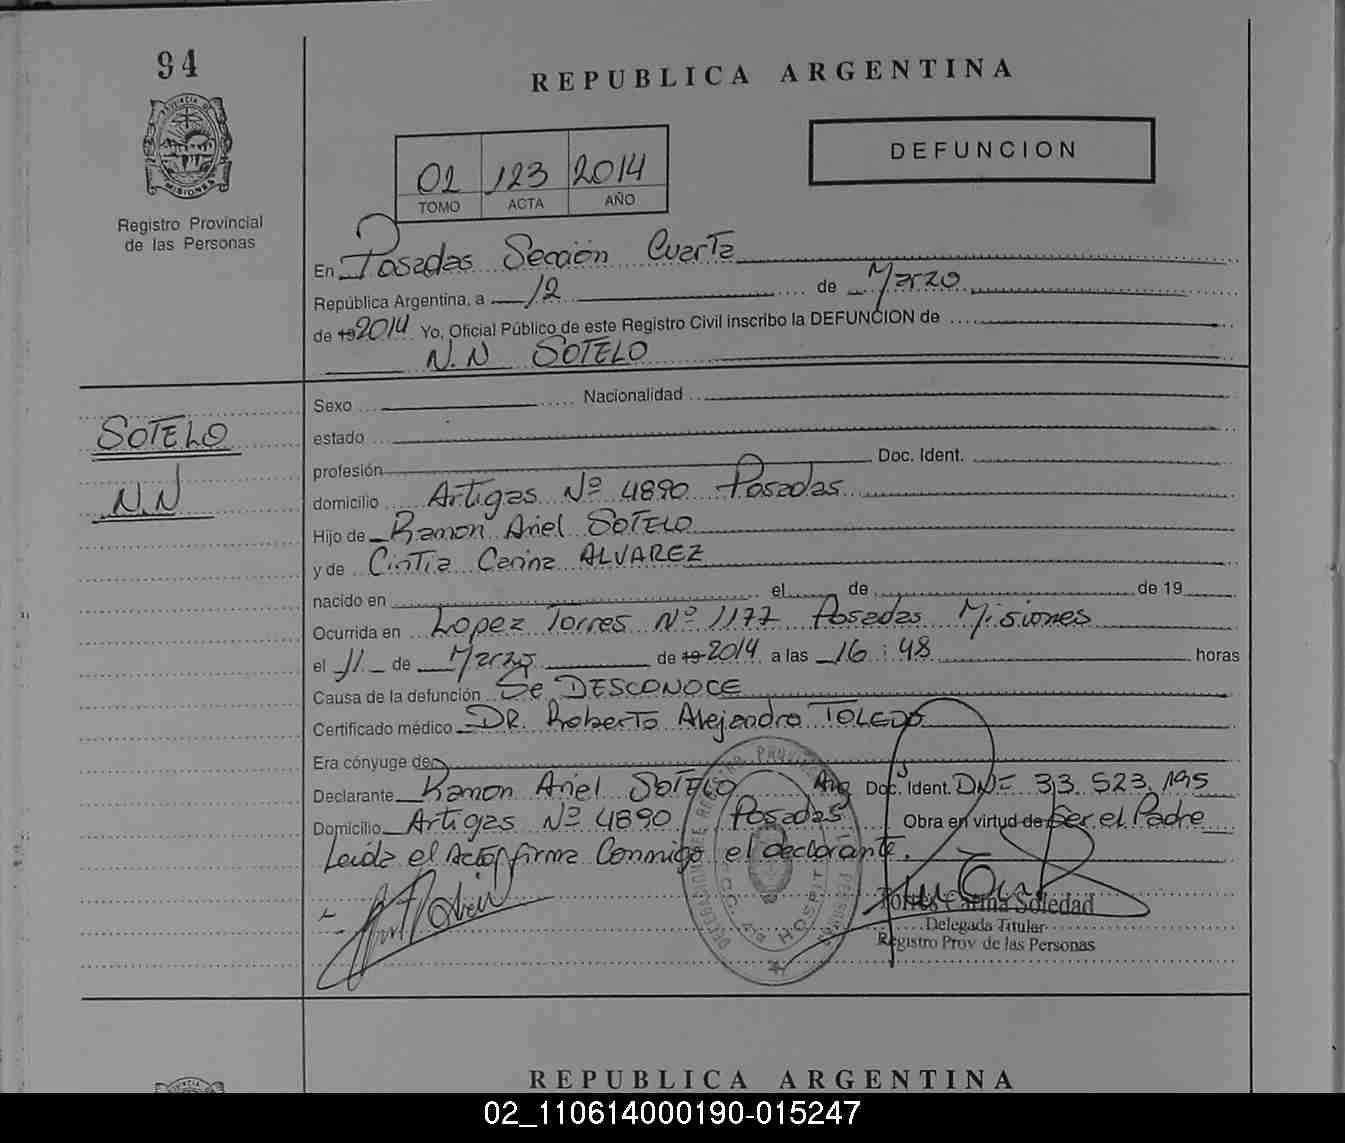 94
REPUBLICA ARGENTINA
PROVINCIA DE
MISIONES
DEFUNCION
02 123 2014
TOMO ACTA AÑO
Registro Provincial
de las Personas
En Posadas Sección Cuarta
República Argentina, a 12 de Marzo
de 19 2014 Yo, Oficial Público de este Registro Civil inscribo la DEFUNCION de
N.N SOTELO
Sexo Nacionalidad
SOTELO
estado
profesión Doc. Ident.
N.N
domicilio Artigas Nº 4890 Posadas
Hijo de Ramon Ariel SOTELO
y de Cintia Carina ALVAREZ
nacido en el de de 19
Ocurrida en Lopez Torres Nº 1177 Posadas Misiones
el 11 de Marzo de 19 2014 a las 16:48 horas
Causa de la defunción Se DESCONOCE
Certificado médico DR. Roberto Alejandro TOLEDO
Era cónyuge de
Declarante Ramon Ariel SOTELO Arg Doc. Ident. DNI 33.523.195
Domicilio Artigas Nº 4890 Posadas Obra en virtud de Ser el Padre
Leida el Acta firma Conmigo el declarante.
HOSPIT
Torres Carina Soledad
Delegada Titular
Registro Prov de las Personas
REPUBLICA ARGENTINA
02_110614000190-015247